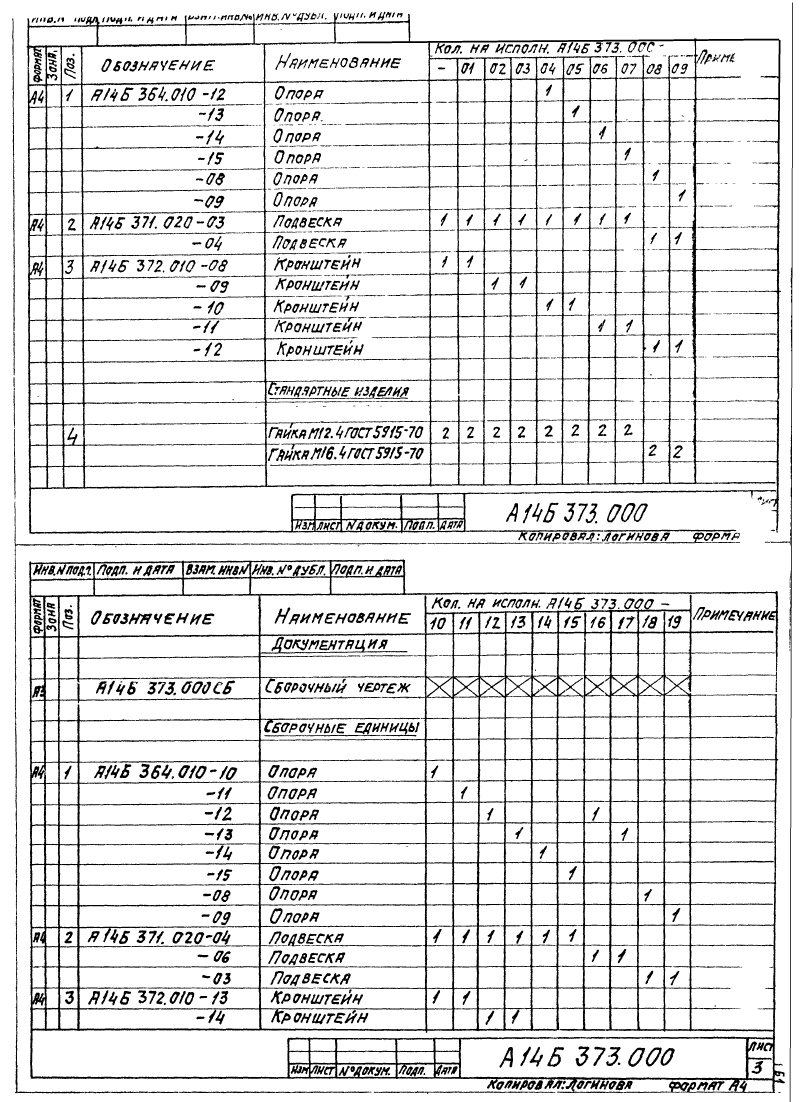 ИНВ.N ПОДЛ. ПОДП. И ДАТА ВЗАМ.ИНВ№ ИНВ.№ДУБЛ. ПОДП. И ДАТА
ФОРМАТ ЗОНА ПОЗ. ОБОЗНАЧЕНИЕ НАИМЕНОВАНИЕ КОЛ. НА ИСПОЛН. А14Б 373.000 - ПРИМЕ
- 01 02 03 04 05 06 07 08 09
А4 1 А14Б 364.010 -12 ОПОРА 1
-13 ОПОРА 1
-14 ОПОРА 1
-15 ОПОРА 1
-08 ОПОРА 1
-09 ОПОРА 1
А4 2 А14Б 371.020-03 ПОДВЕСКА 1 1 1 1 1 1 1 1
-04 ПОДВЕСКА 1 1
А4 3 А14Б 372.010 -08 КРОНШТЕЙН 1 1
-09 КРОНШТЕЙН 1 1
-10 КРОНШТЕЙН 1 1
-11 КРОНШТЕЙН 1 1
-12 КРОНШТЕЙН 1 1
СТАНДАРТНЫЕ ИЗДЕЛИЯ
4 ГАЙКА М12.4 ГОСТ 5915-70 2 2 2 2 2 2 2 2
ГАЙКА М16.4 ГОСТ 5915-70 2 2
А14Б 373.000
ИЗМ ЛИСТ N ДОКУМ. ПОДП. ДАТА
КОПИРОВАЛ: ЛОГИНОВА ФОРМА
ИНВ.N ПОДЛ. ПОДП. И ДАТА ВЗАМ. ИНВ.N ИНВ. №ДУБЛ. ПОДП. И ДАТА
ФОРМАТ ЗОНА ПОЗ. ОБОЗНАЧЕНИЕ НАИМЕНОВАНИЕ КОЛ. НА ИСПОЛН. А14Б 373.000 - ПРИМЕЧАНИЕ
10 11 12 13 14 15 16 17 18 19
ДОКУМЕНТАЦИЯ
А3 А14Б 373.000СБ СБОРОЧНЫЙ ЧЕРТЕЖ
СБОРОЧНЫЕ ЕДИНИЦЫ
А4 1 А14Б 364.010-10 ОПОРА 1
-11 ОПОРА 1
-12 ОПОРА 1 1
-13 ОПОРА 1 1
-14 ОПОРА 1
-15 ОПОРА 1
-08 ОПОРА 1
-09 ОПОРА 1
А4 2 А14Б 371.020-04 ПОДВЕСКА 1 1 1 1 1 1
-06 ПОДВЕСКА 1 1
-03 ПОДВЕСКА 1 1
А4 3 А14Б 372.010-13 КРОНШТЕЙН 1 1
-14 КРОНШТЕЙН 1 1
А14Б 373.000 ЛИСТ
3
ИЗМ ЛИСТ №ДОКУМ. ПОДП. ДАТА
КОПИРОВАЛ: ЛОГИНОВА ФОРМАТ А4